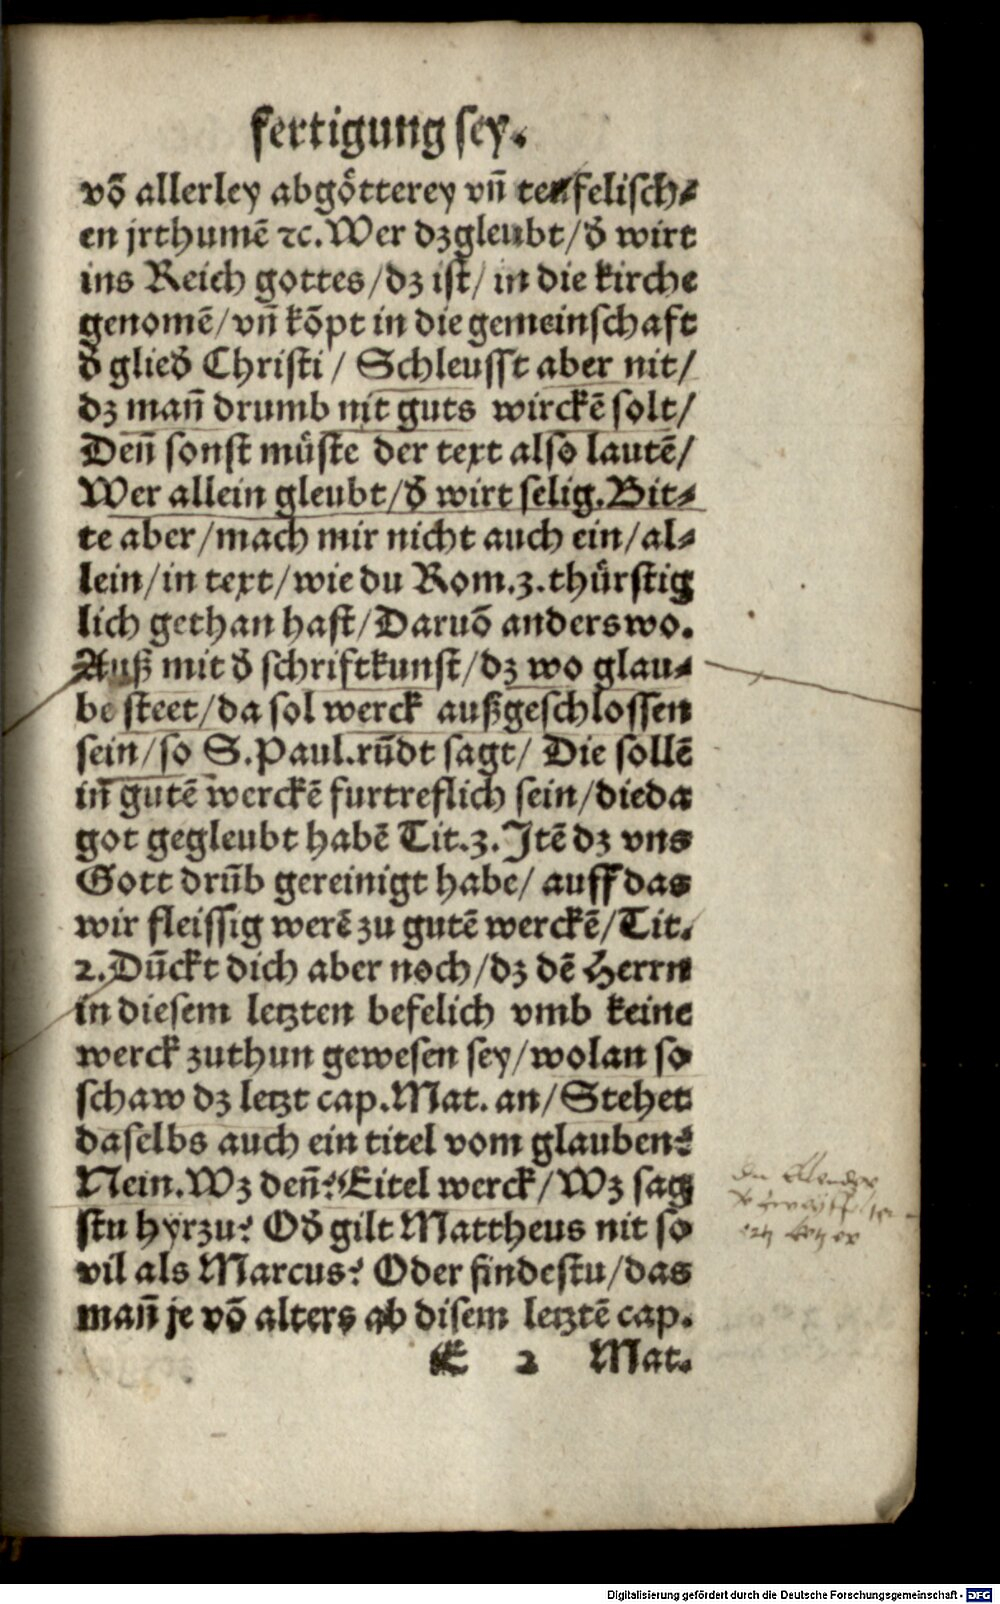 fertigung sey.
võ allerley abgötterey vñ teufelisch⸗
en jrthumẽ ⁊c. Wer dz gleubt/ d̕ wirt
ins Reich gottes/ dz ist/ in die kirche
genomẽ/ vñ kõpt in die gemeinschaft
d̕ glied̕ Christi/ Schleusst aber nit/
dz mañ drumb nit guts wirckẽ solt/
Deñ sonst müste der text also lautẽ/
Wer allein gleubt/ d̕ wirt selig. Bit⸗
te aber/ mach mir nicht auch ein/ al⸗
lein/ in text/ wie du Rom. 3. thürstig
lich gethan hast/ Daruõ anderswo.
Auß mit d̕ schriftkunst/ dz wo glau⸗
be steet/ da sol werck außgeschlossen
sein/ so S. Paul. rũdt sagt/ Die sollẽ
iñ gutẽ werckẽ furtreflich sein/ die da
got gegleubt habẽ Tit. 3. Jtẽ dz vns
Gott drũb gereinigt habe/ auff das
wir fleissig werẽ zu gutẽ werckẽ/ Tit.
2. Dũckt dich aber noch/ dz dẽ Herrn
in diesem letzten befelich vmb keine
werck zuthun gewesen sey/ wolan so
schaw dz letzt cap. Mat. an/ Stehet
daselbs auch ein titel vom glauben?
Nein. Wz deñ? Eitel werck/ Wz sag
stu hyrzu? Od̕ gilt Mattheus nit so
vil als Marcus? Oder findestu/ das
mañ je võ alters ab disem letztẽ cap.
E 2 Mat.
Digitalisierung gefördert durch die Deutsche Forschungsgemeinschaft - DFG